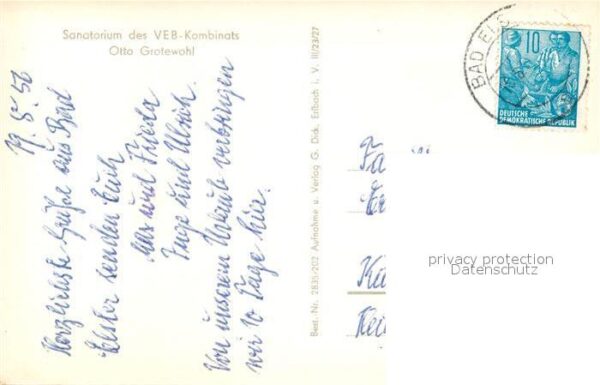 Sanatorium des VEB-Kombinats
Otto Grotewohl
19.5.56
Herzlichste Grüße aus Bad
Elster senden Euch
Max und Frieda
Inge und Ulrich.
Von unserem Urlaub verbringen
wir 10 Tage hier.
Best. Nr. 2835/202 Aufnahme u. Verlag G. Dick, Erlbach i. V. III/23/27
BAD ELS
10
DEUTSCHE
DEMOKRATISCHE REPUBLIK
Fa
Kü
privacy protection
Datenschutz